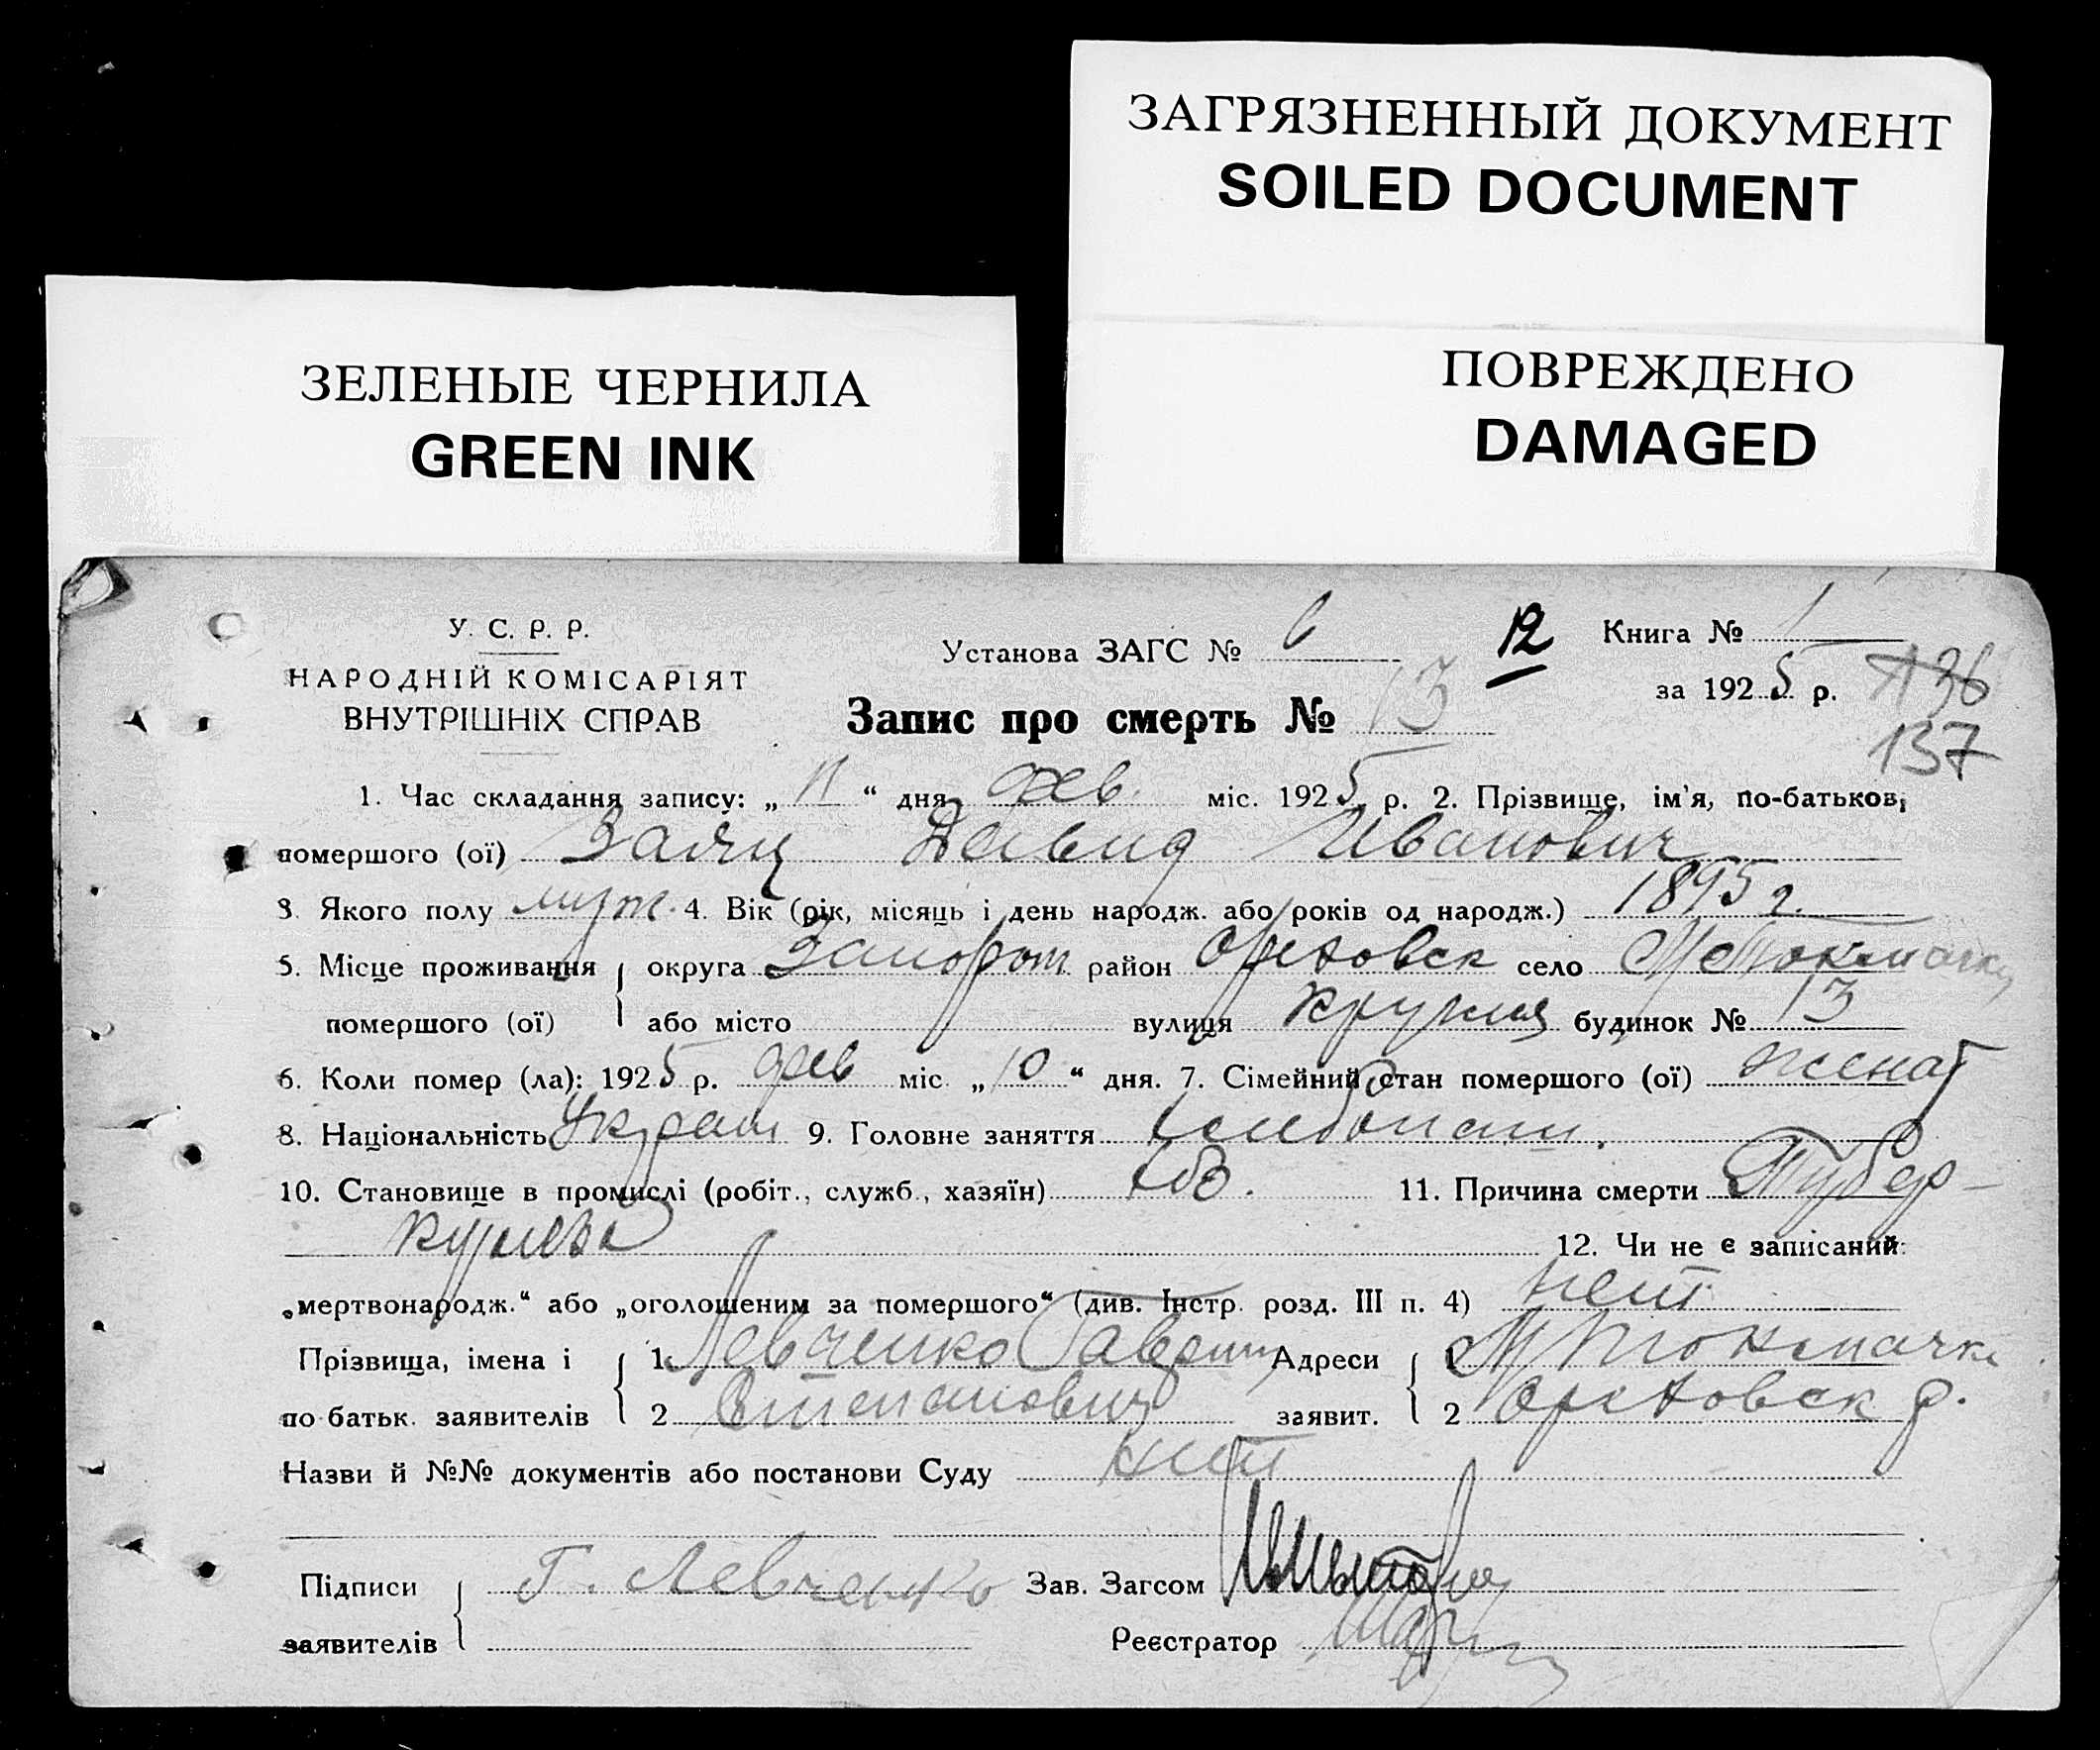 ЗАГРЯЗНЕННЫЙ ДОКУМЕНТ
SOILED DOCUMENT
ЗЕЛЕНЫЕ ЧЕРНИЛА
GREEN INK
ПОВРЕЖДЕНО
DAMAGED
У. С. Р. Р.
НАРОДНІЙ КОМІСАРІЯТ
ВНУТРІШНІХ СПРАВ
Установа ЗАГС № 6
12
Книга № 1
за 1925 р.
136
137
Запис про смерть № 13
1. Час складання запису: „11“ дня фев. міс. 1925 р. 2. Прізвище, ім'я, по-батькові,
помершого (ої) Заяц Давид Иванович
3. Якого полу муж. 4. Вік (рік, місяць і день народж. або років од народж.) 1895 г.
5. Місце проживання помершого (ої) округа Запорож район Ореховск село М Токмачку
або місто вулиця будинок № 13
6. Коли помер (ла): 1925 р. фев міс. „10“ дня. 7. Сімейний стан помершого (ої) женат
8. Національність Украин 9. Головне заняття хлебопаш.
10. Становище в промислі (робіт., служб., хазяїн) хоз. 11. Причина смерти Тубер-
кулеза 12. Чи не є записаний:
„мертвонародж.“ або „оголошеним за помершого“ (див. Інстр. розд. III п. 4) нет
Прізвища, імена і по батьк. заявителів 1 Левченко Гаврил Адреси заявит. 1 М Токмачка
2 Степанович 2 Ореховск р.
Назви й №№ документів або постанови Суду нет
Підписи заявителів Г. Левченко Зав. Загсом
Реєстратор